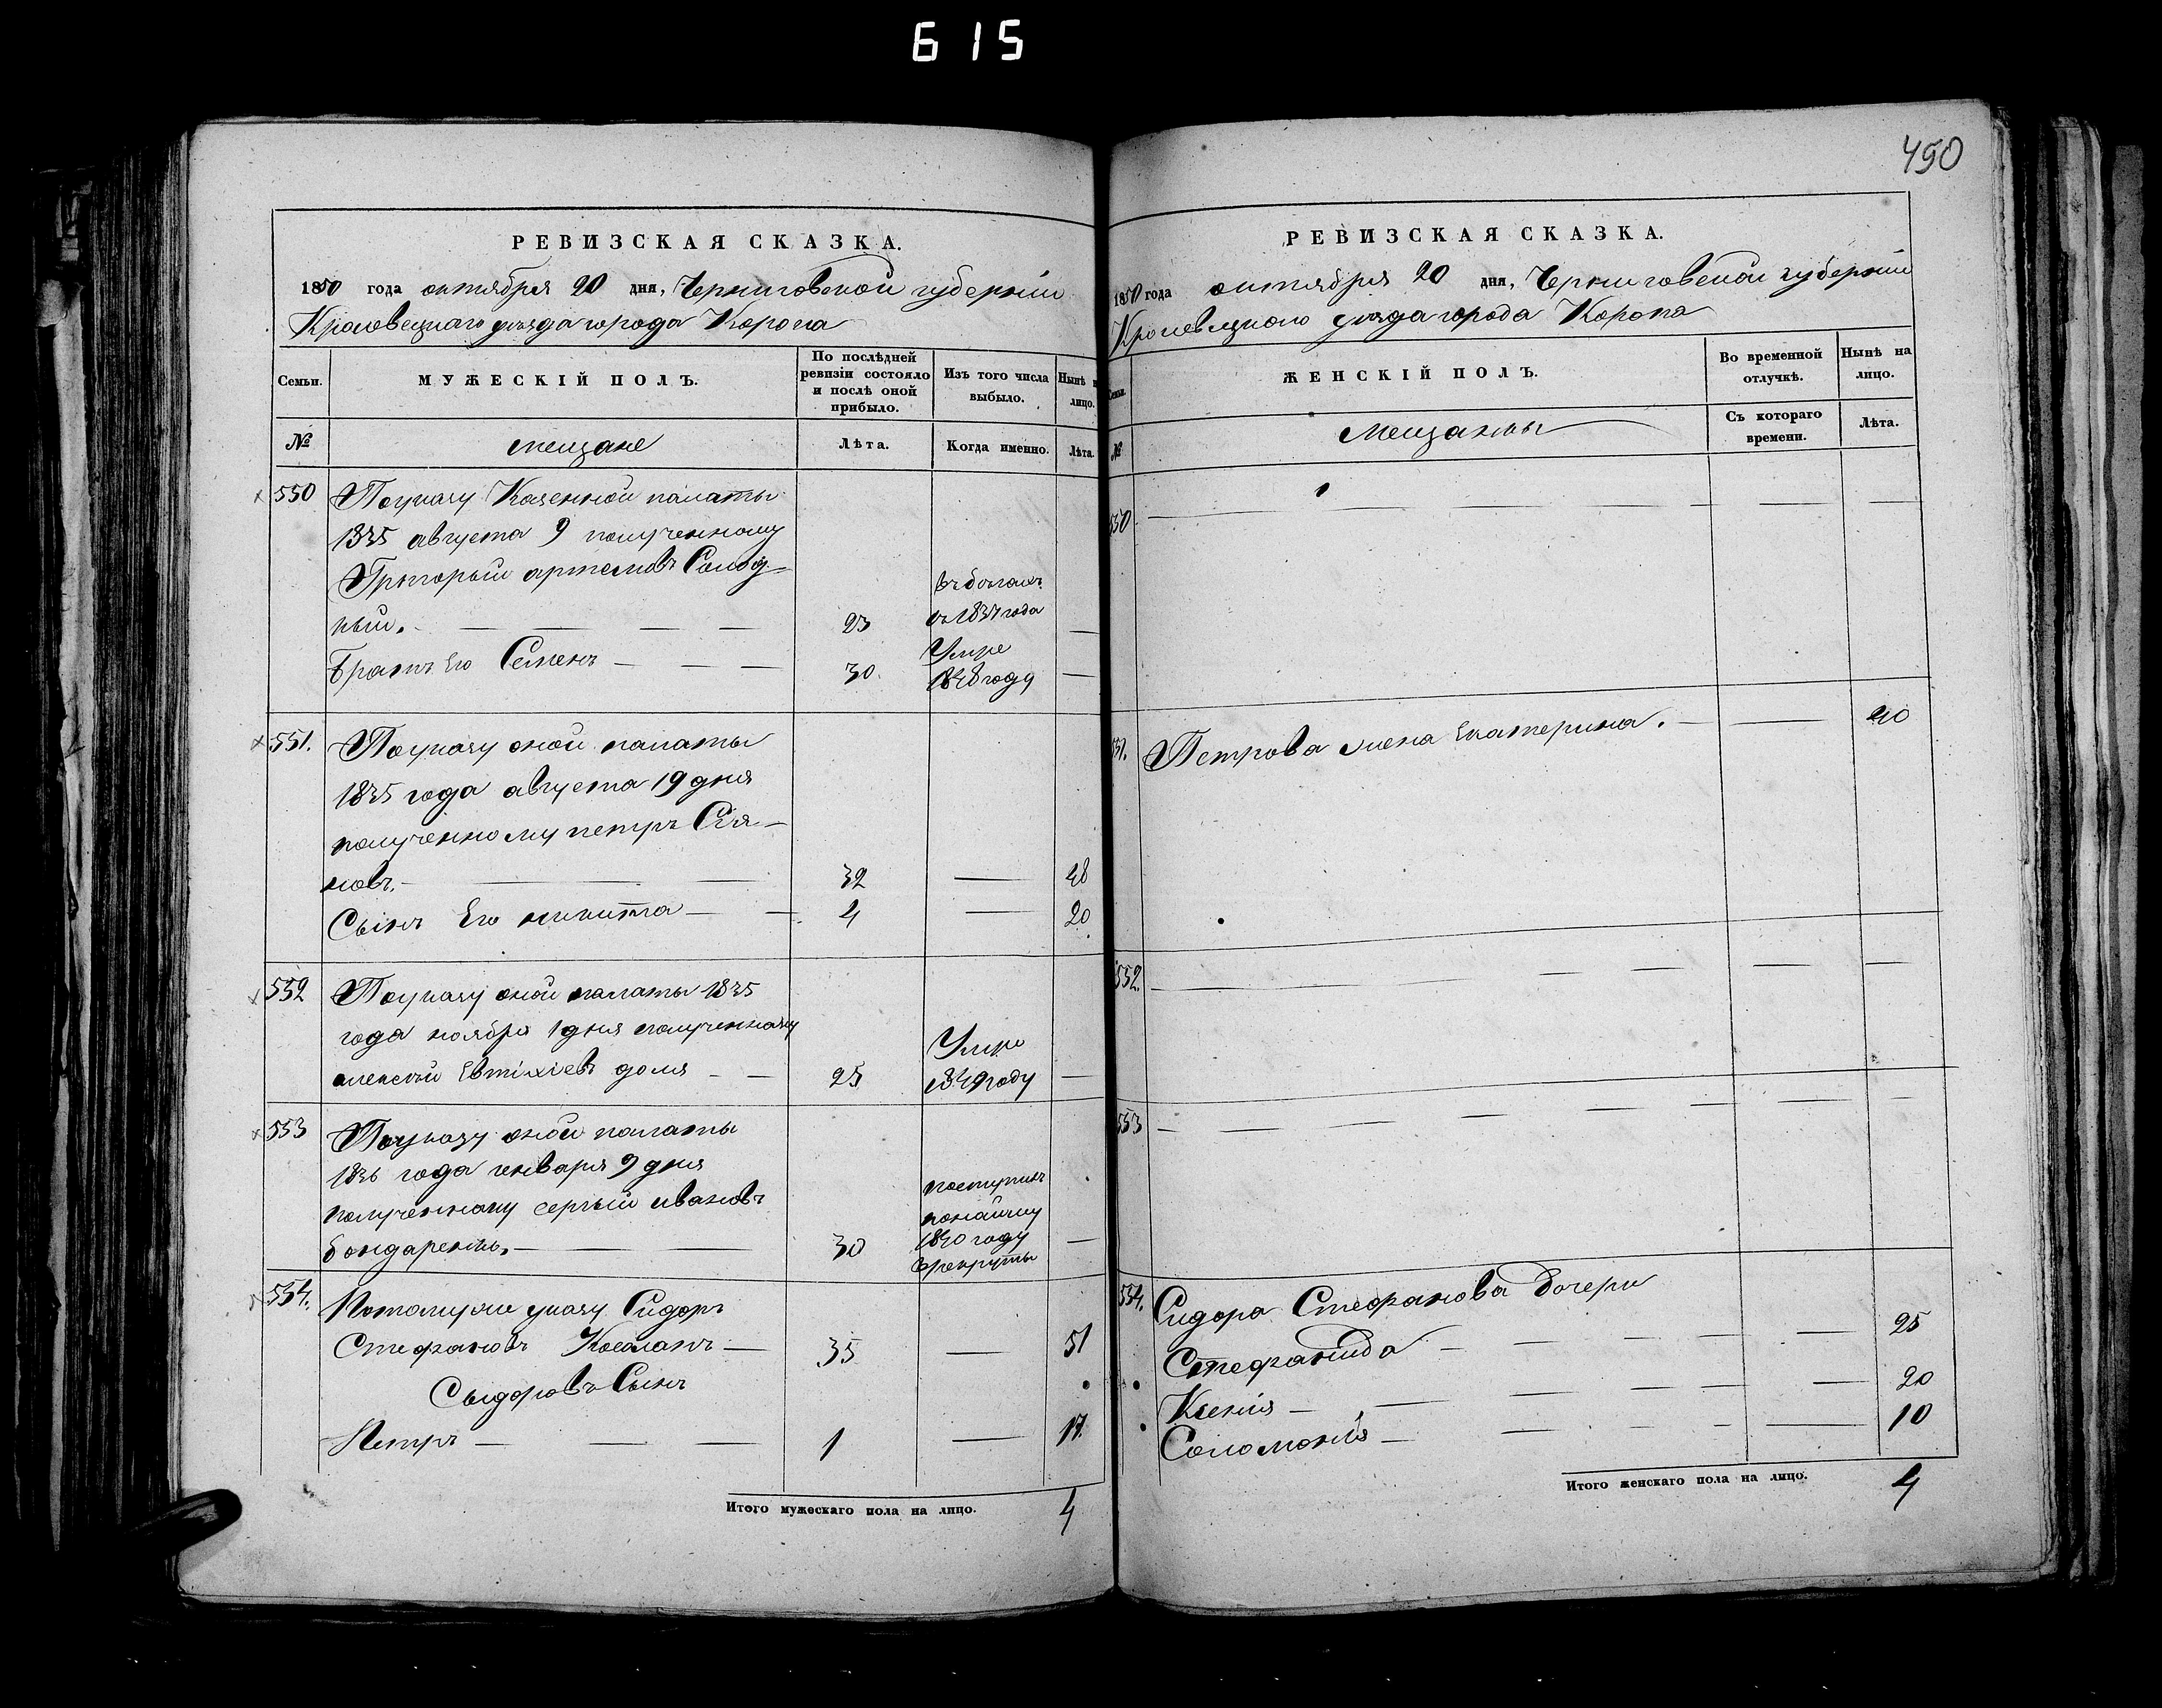 615
490
РЕВИЗСКАЯ СКАЗКА.
1850 года октября 20 дня, Черниговской губерніи
Кролевецкаго уезда города Коропа
Семьи.
МУЖЕСКІЙ ПОЛЪ.
По послѣдней ревизіи состояло и послѣ оной прибыло.
Изъ того числа выбыло.
Нынѣ н лицо.
№
мещане
Лѣта.
Когда именно.
Лѣта.
550
По указу Казенной палаты
1835 августа 9 полученному
Григорый артемовъ Солод-
ный.
23
въ бегахъ
съ 1837 года
Братъ Его Семенъ
30
Умре
1848 году
551.
По указу оной палаты
1835 года августа 19 дня
полученному петръ
новъ.
32
48
Сынъ Его никита
4
20
552
По указу оной палаты 1835
года ноября 1 дня полученному
алексей Евтихіевъ доля
25
Умре
1849 году
553
По указу оной палаты
1836 года генваря 9 дня
полученному сергей ивановъ
бондаренко.
30
поступилъ
понайму
1840 году
в рекруты
554.
По тому же указу Сидоръ
Стефановъ
35
51
Сыдоровъ Сынъ
Петръ
1
17.
Итого мужескаго пола на лицо.
4
РЕВИЗСКАЯ СКАЗКА.
1850 года октября 20 дня, Черниговской губерніи
Кролевецкаго уезда города Коропа
Семьи.
ЖЕНСКІЙ ПОЛЪ.
Во временной отлучкѣ.
Нынѣ на лицо.
№
Мещанки
Съ котораго времени.
Лѣта.
550
551.
Петрова жена Екатерина.
40
552.
553
554.
Сидора Стефанова дочери
Стефанида
25
Ксенія
20
Соломонія
10
Итого женскаго пола на лицо.
4